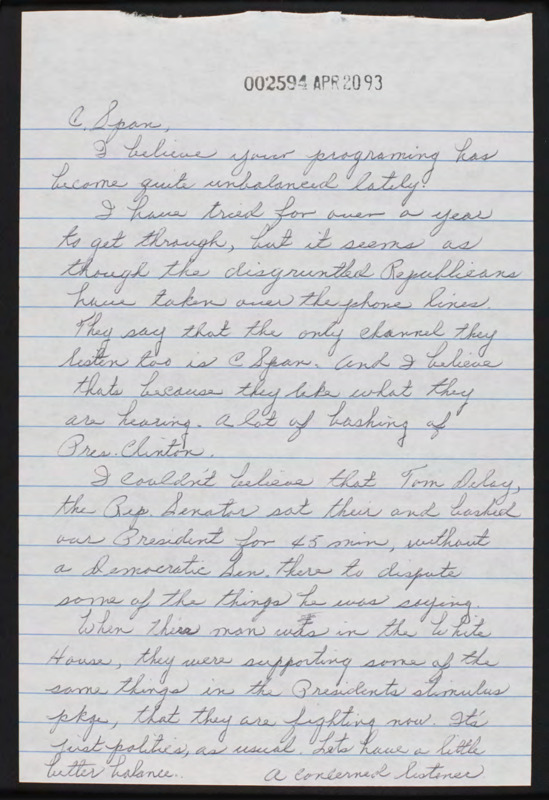 002594 APR 20 93
C. Span,
I believe your programing has
become quite unbalanced lately.
I have tried for over a year
to get through, but it seems as
though the disgruntled Republicans
have taken over the phone lines.
They say that the only channel they
listen too is C Span. And I believe
thats because they like what they
are hearing. A lot of bashing of
Pres. Clinton.
I couldn't believe that Tom Delay,
the Rep. Senator sat their and bashed
our President for 45 min, without
a Democratic Sen. there to dispute
some of the things he was saying.
When their man was in the White
House, they were supporting some of the
same things in the Presidents stimulus
pkge, that they are fighting now. Its
just politics, as usual. Lets have a little
better balance. A concerned listener